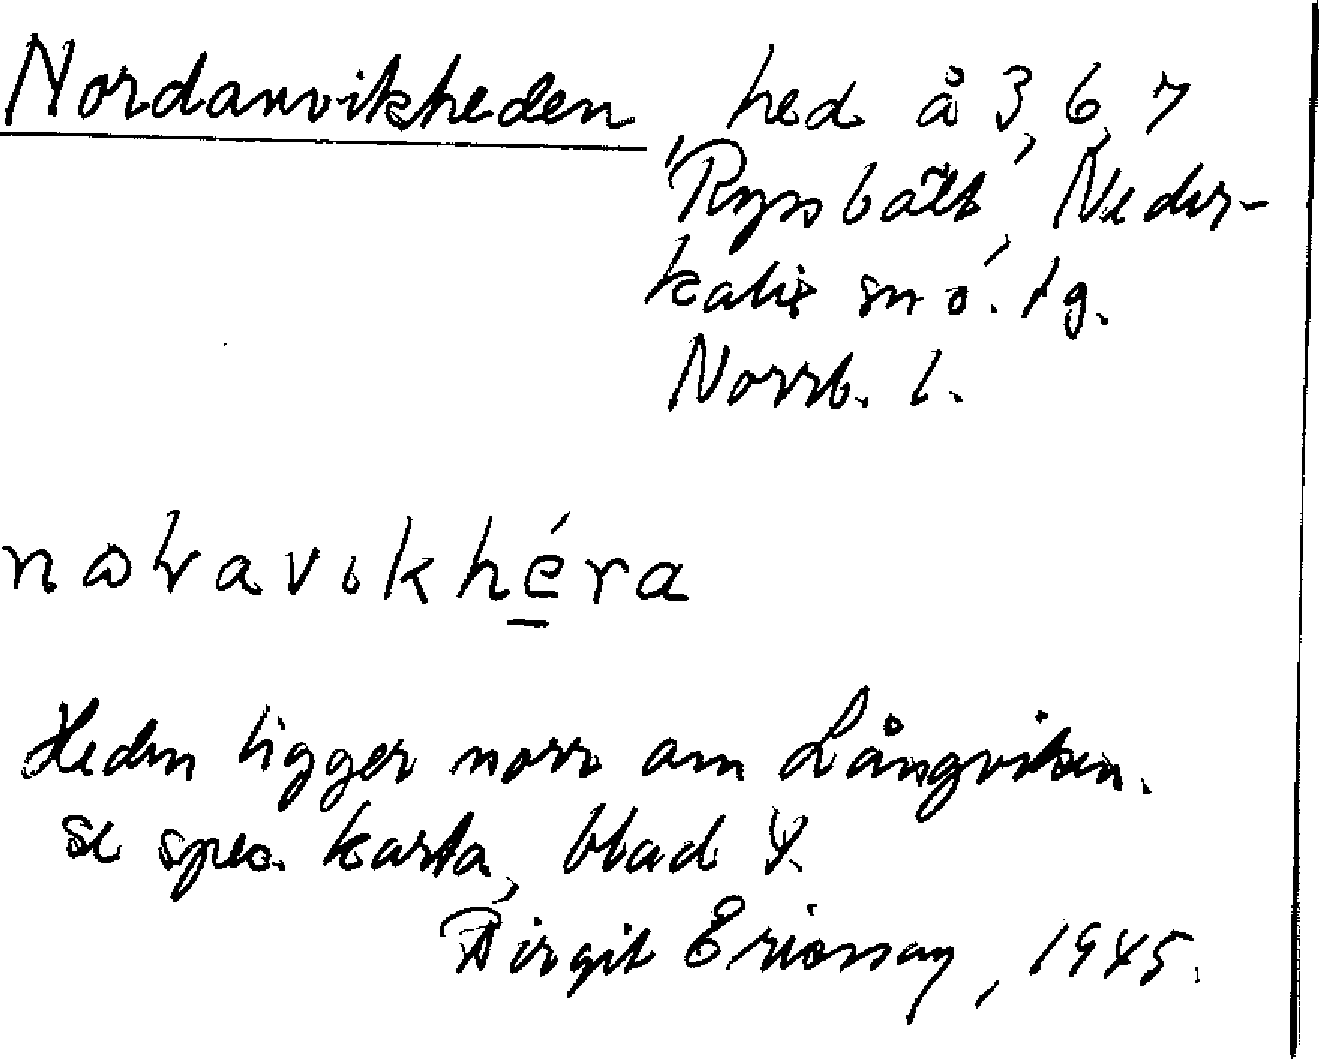 Nordanvikheden hed å 3, 6, 7
Rysbält, Neder-
kalix sn o. tg.
Norrb. l.
Heden ligger norr om Långviken.
Se spec. karta, blad 4.
Birgit Ericsson, 1945.